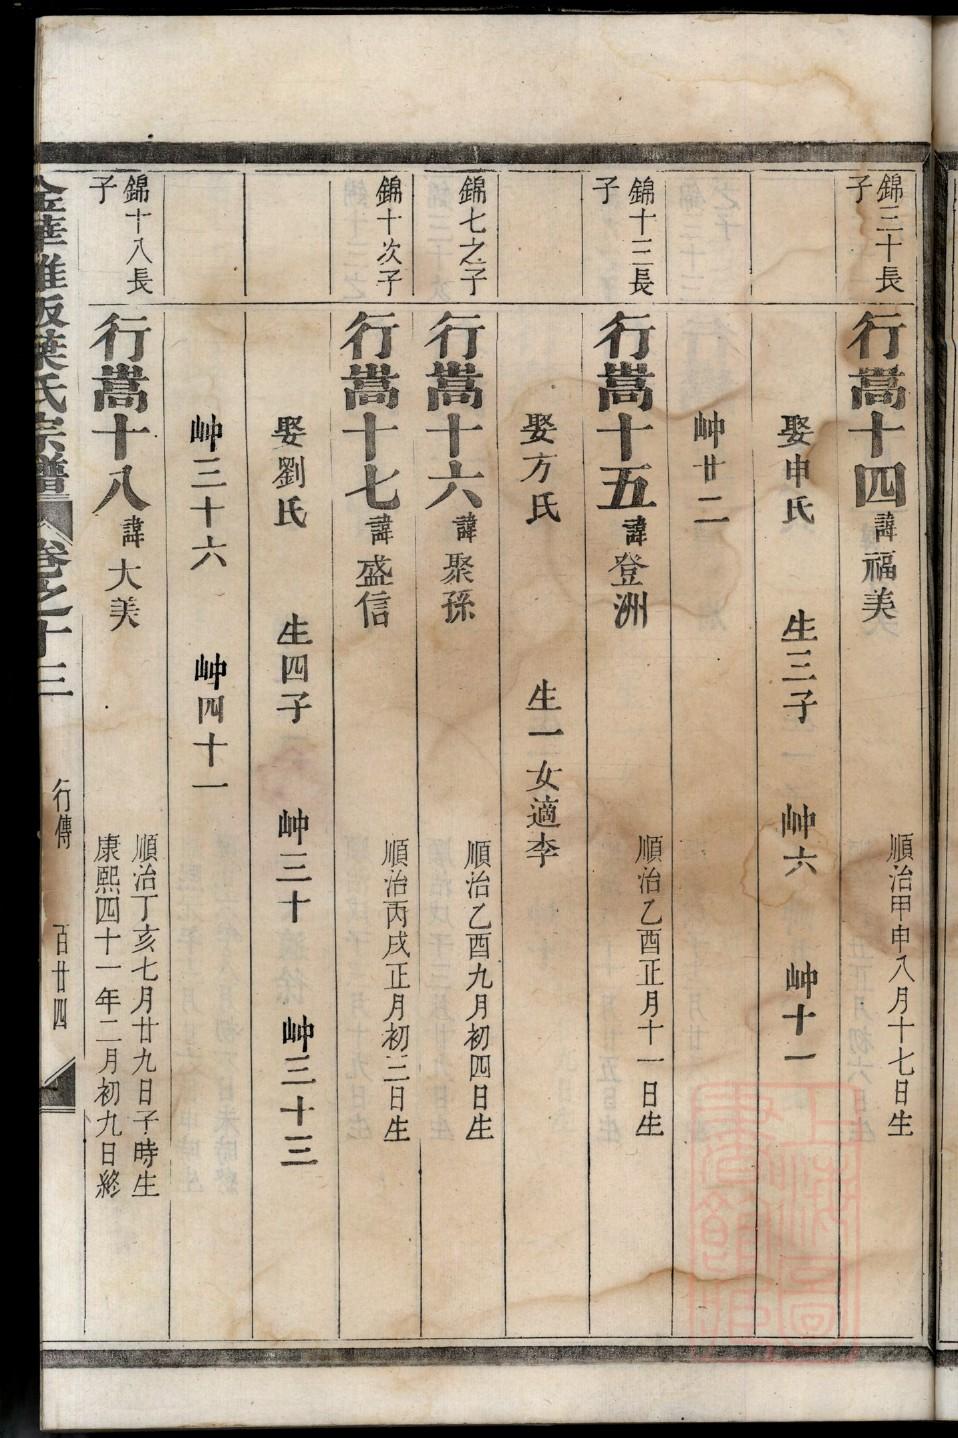 錦三十長子
行嵩十四諱福美
順治甲申八月十七日生
娶申氏 生三子 岫六 岫十一
岫廿二
錦十三長子
行嵩十五諱登洲
順治乙酉正月十一日生
娶方氏 生一女適李
錦七之子
行嵩十六諱聚孫
順治乙酉九月初四日生
錦十次子
行嵩十七諱盛信
順治丙戌正月初二日生
娶劉氏 生四子 岫三十 岫三十三
岫三十六 岫四十一
錦十八長子
行嵩十八諱大美
順治丁亥七月廿九日子時生
康熙四十一年二月初九日終
葉氏宗譜 卷之十三 行傳 百廿四